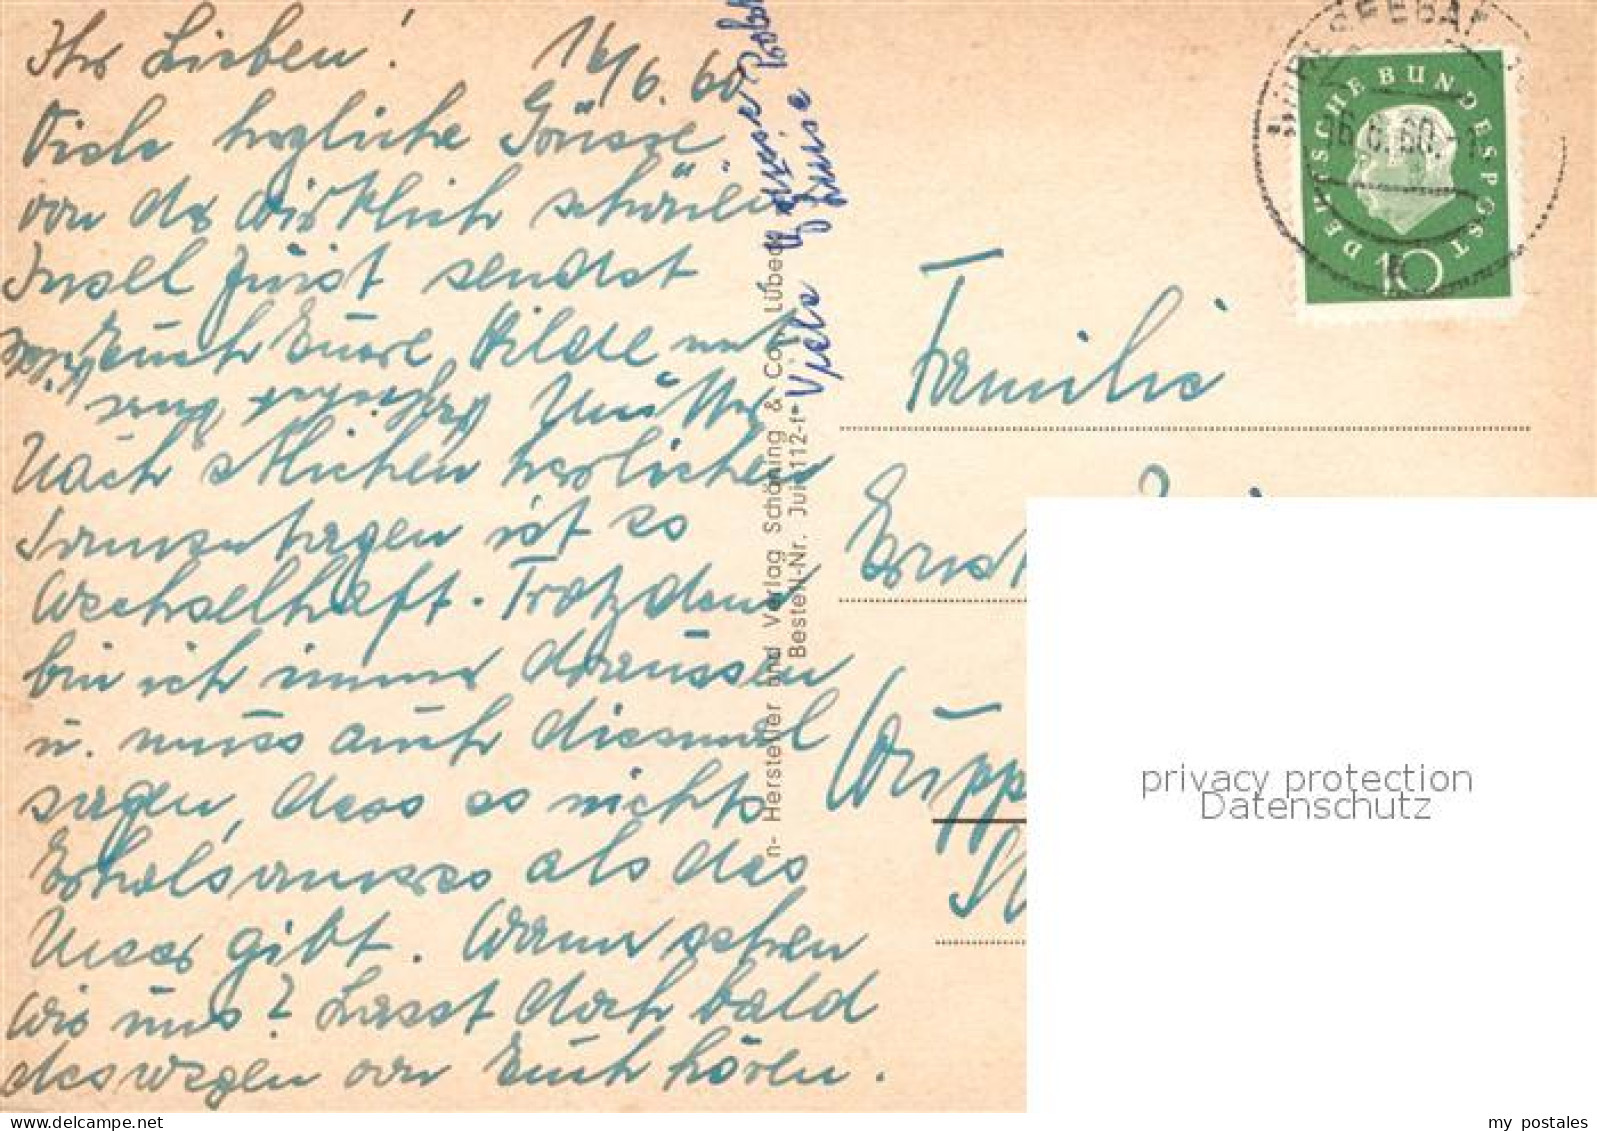 Ihr Lieben! 16/6.60
Viele herzliche Grüsse
von der wirklich schönen
Insel Juist sendet
Euch Eure Hilde mit
Mutter
Nach etlichen herrlichen
Sonnentagen ist es
Wechselhaft. Trotzdem
bin ich immer draussen
u. muss auch diesmal
sagen, dass es nichts
Erholsameres als das
Meer gibt. Wann sehen
wir uns? Lasst doch bald
deswegen von Euch hören.
Viele Grüsse
Luise
n- Hersteller und Verlag Schöning & Co., Lübeck
Bestell-Nr. Jui 112-f
DEUTSCHE BUNDESPOST
10
16.6.60.-1
Familie
Ernst
Wupp
privacy protection
Datenschutz
my postales